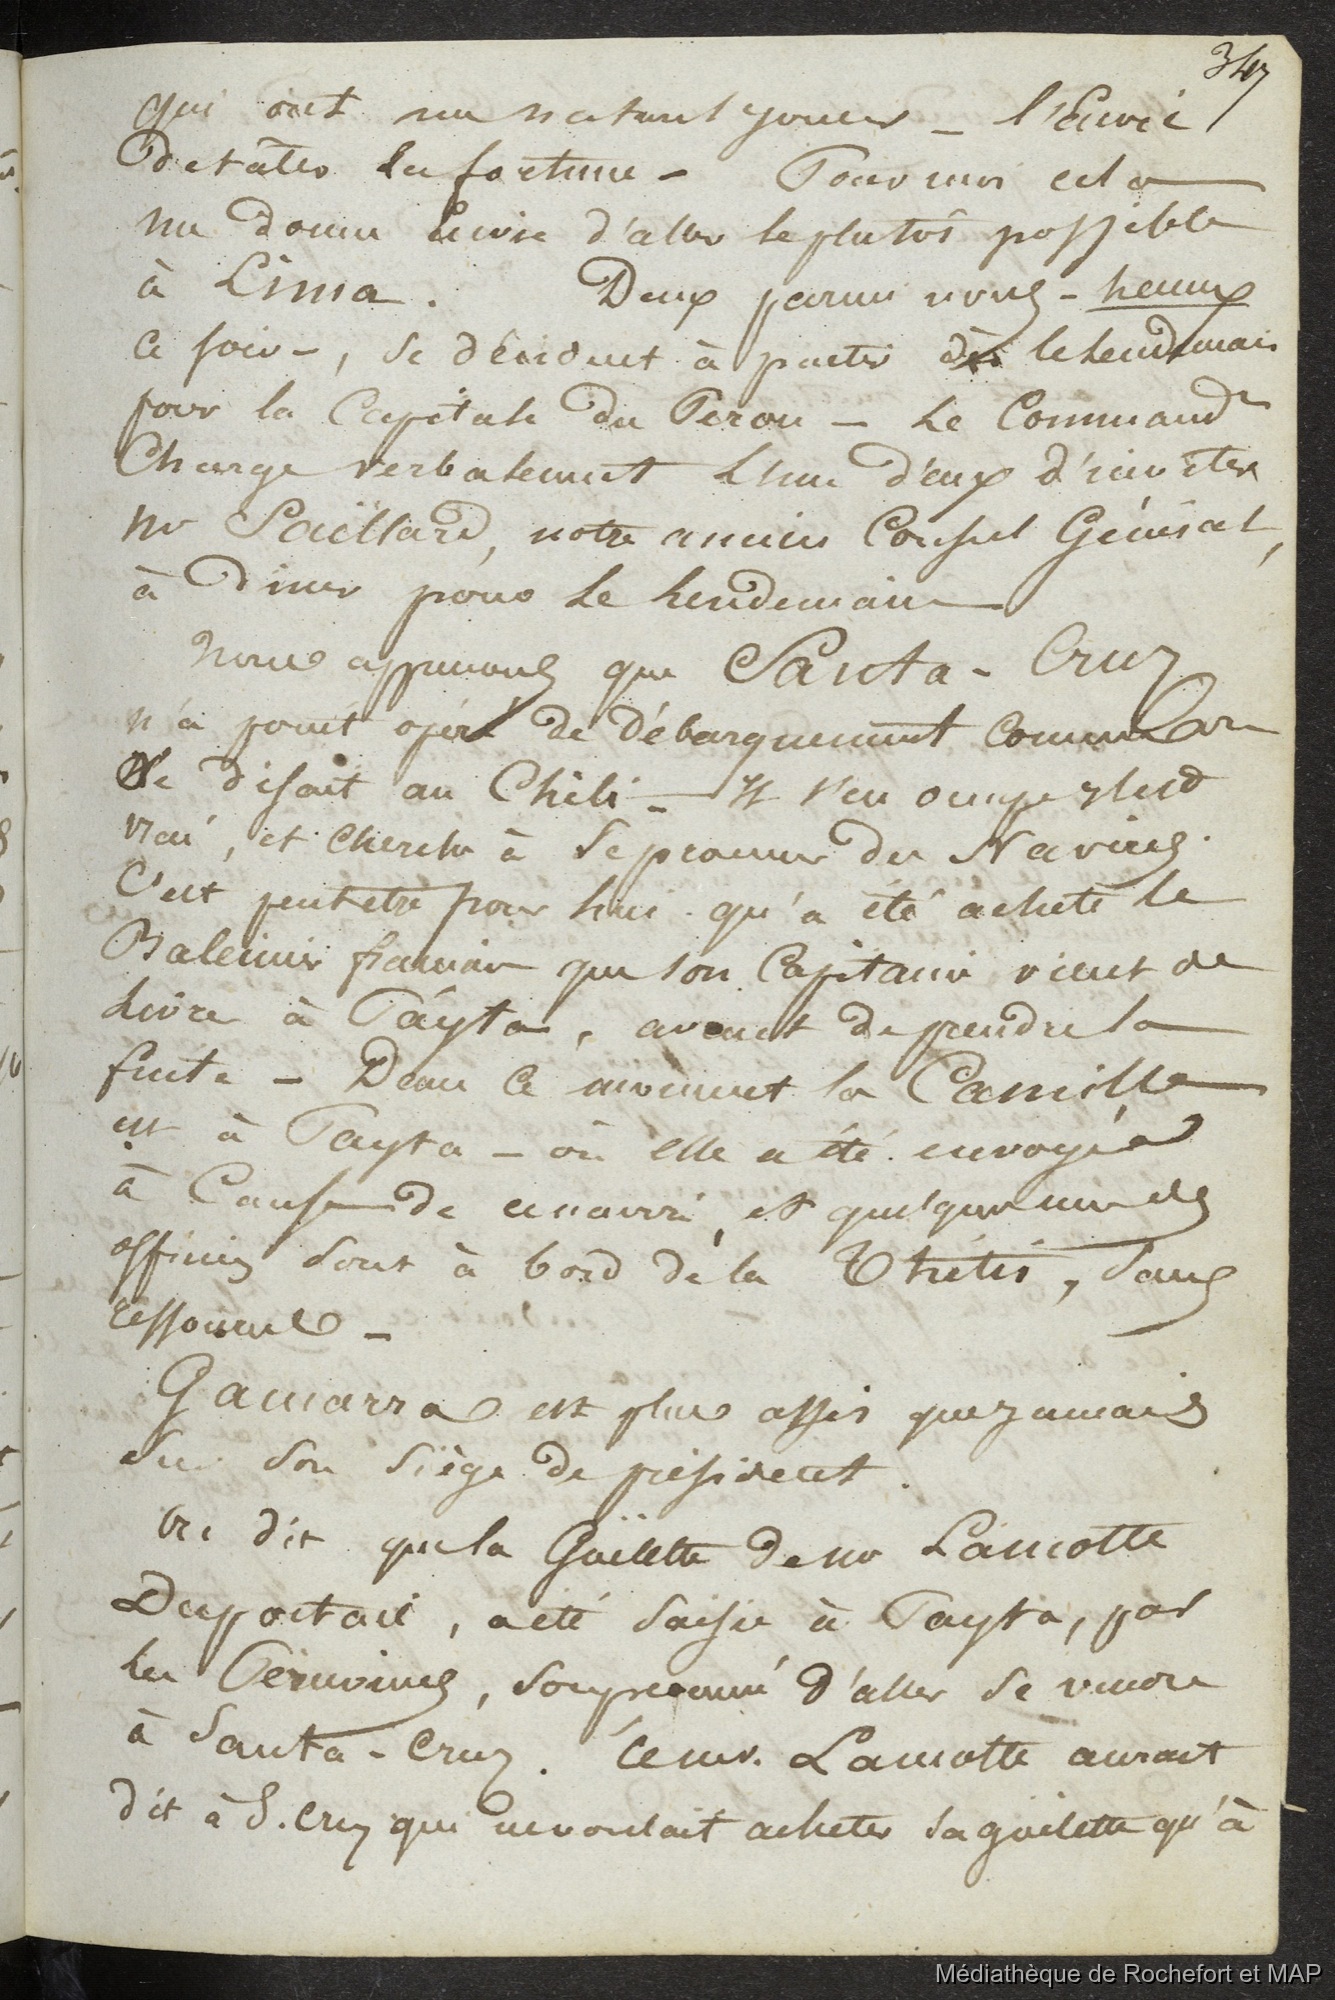 347
qui ont un naturel joueur – l'Envie
de tâter la fortune – Pour moi cela
me donne Envie d'aller le plutôt possible
à Lima. Deux parmi nous – heureux
ce soir –, se décident à partir dès le lendemain
pour la Capitale du Perou – Le Command.r
Charge verbalement L'un d'eux d'inviter
mr Saillard, notre ancien Consul Général,
à diner pour le lendemain
Nous apprenons que Santa-Cruz
n'a point opéré de débarquement comme on
le disait au Chili – Il s'en occupe, il est
vrai, et cherche à se procurer des Navires.
C'est peut etre pour lui qu'a été acheté le
Baleinier français que son Capitaine vient de
livrer à Páyta, avant de prendre la
fuite – Dans ce moment la Camille
est à Payta – où elle a été envoyée
à Cause de ce navire, et quelques uns des
officiers sont à bord de la Thétis, sans
ressources –
Gamarra est plus assis que jamais
sur son siège de président.
On dit que la Goëlette de mr Lamotte
Duportail, a été saisie à Payta, par
les Péruviens, soupçonné d'aller se vendre
à Santa-Cruz. Ce mr. Lamotte aurait
dit à S. Cruz qui ne voulait acheter sa goëlette qu'à
Médiathèque de Rochefort et MAP